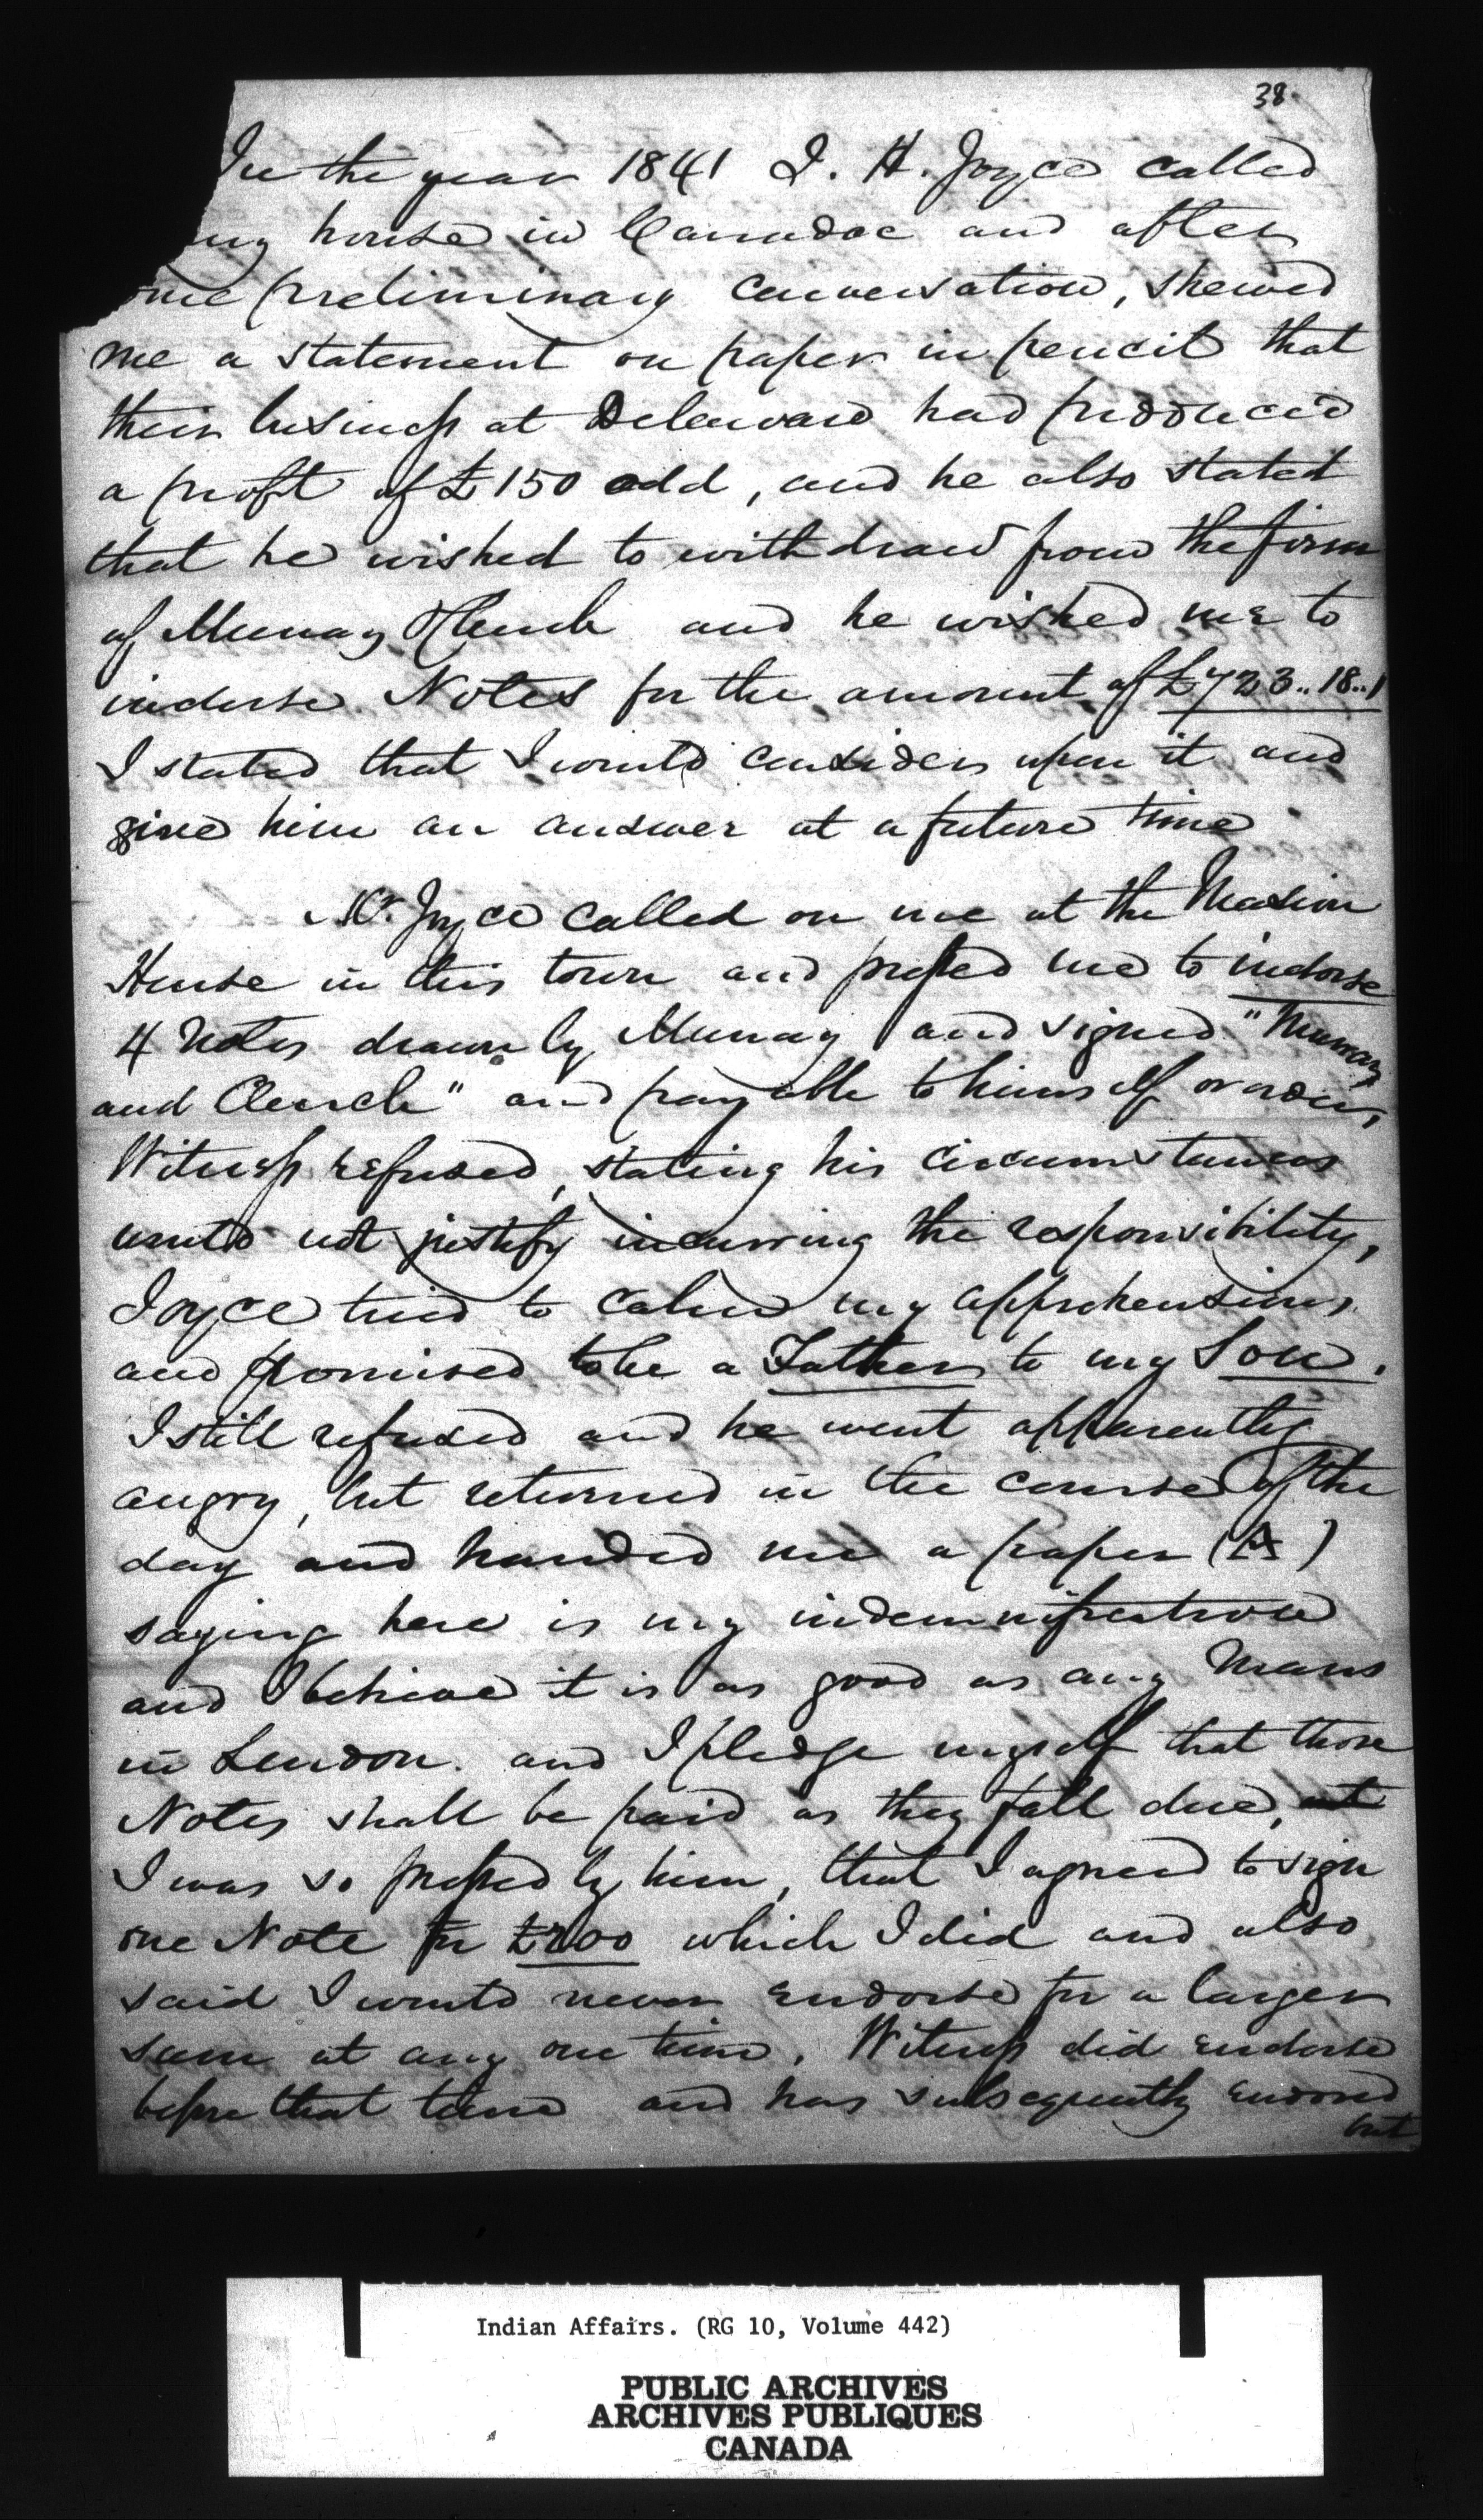 38.
In the year 1841 J. H. Joyce called
my house in Carradoc and after
ome preliminary conversation, shewed
me a statement on paper in pencil that
their business at Delaware had produced
a profit of £150 odd, and he also stated
that he wished to withdraw from the firm
of Murray & Clench and he wished me to
indorse Notes for the amount of £723..18..1
I stated that I would consider upon it and
give him an answer at a future time
Mr. Joyce called on me at the Mansion
House in this town and pressed me to indorse
4 Notes drawn by Murray and signed "Murray
and Clench" and payable to himself or order,
Witness refused, stating his circumstances
would not justify incurring the responsibility,
Joyce tried to calm my apprehensions,
and promised to be a Father to my Son.
I still refused and he went apparently
angry, but returned in the course of the
day and handed me a paper (A)
saying here is my indemnification
and I believe it is as good as any Mans
in London. and I pledge myself that those
Notes shall be paid as they fall due,
I was so pressed by him, that I agreed to sign
one Note for £200 which I did and also
said I would never endorse for a larger
sum at any one time. Witness did endorse
before that time and has subsequently endorsed
but
Indian Affairs. (RG 10, Volume 442)
PUBLIC ARCHIVES
ARCHIVES PUBLIQUES
CANADA